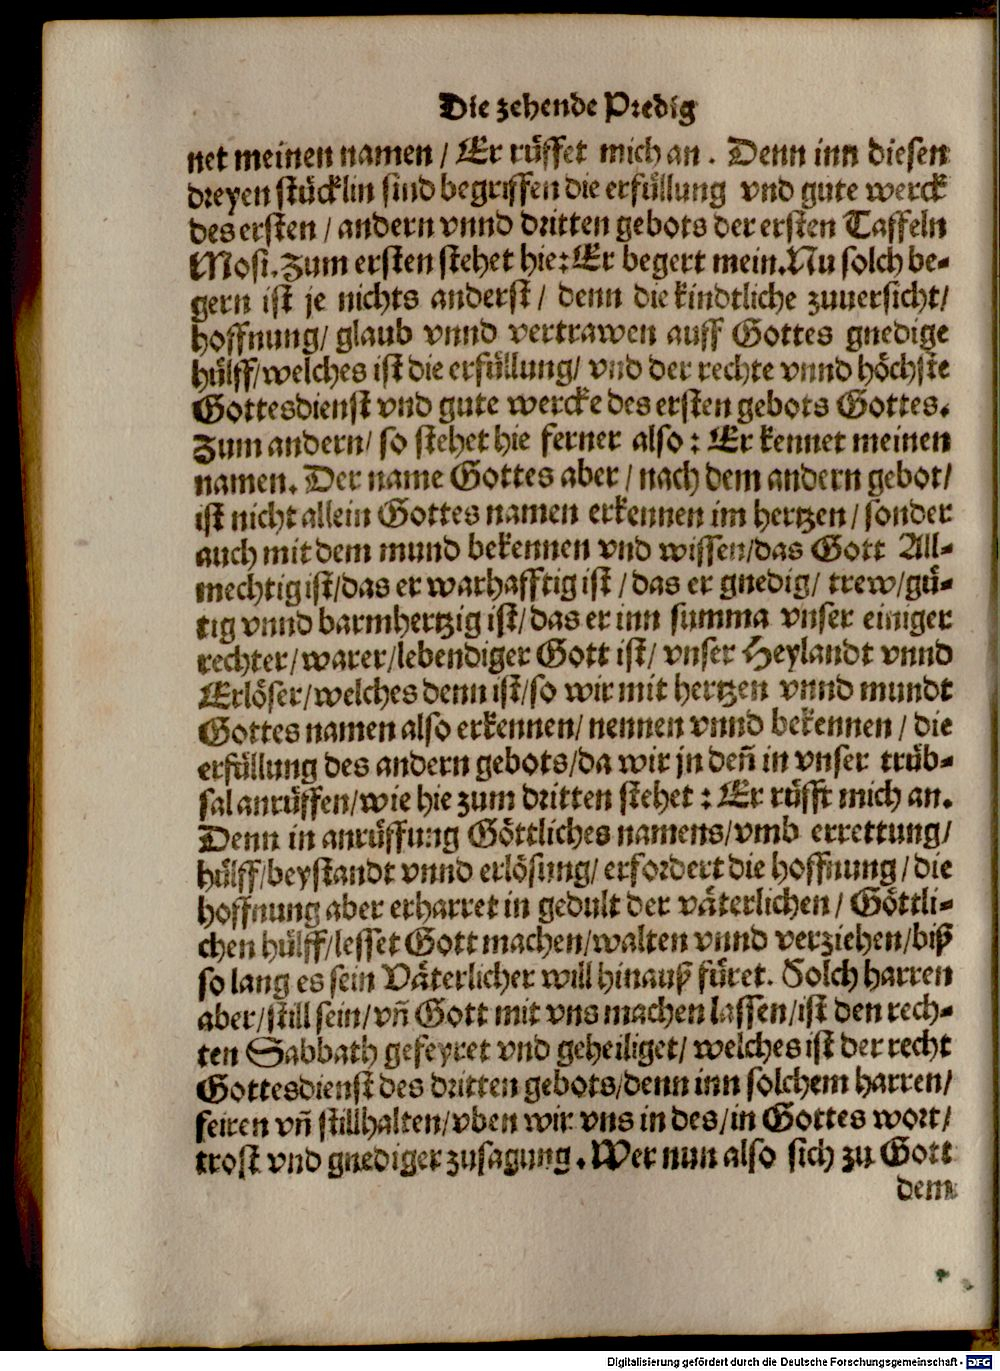 Die zehende Predig
net meinen namen / Er rüffet mich an. Denn inn diesen
dreyen stücklin sind begriffen die erfüllung vnd gute werck
des ersten / andern vnnd dritten gebots der ersten Taffeln
Mosi. Zum ersten stehet hie: Er begert mein. Nu solch be-
gern ist je nichts anderst / denn die kindtliche zuuersicht /
hoffnung / glaub vnnd vertrawen auff Gottes gnedige
hülff / welches ist die erfüllung / vnd der rechte vnnd höchste
Gottesdienst vnd gute wercke des ersten gebots Gottes.
Zum andern / so stehet hie ferner also: Er kennet meinen
namen. Der name Gottes aber / nach dem andern gebot /
ist nicht allein Gottes namen erkennen im hertzen / sonder
auch mit dem mund bekennen vnd wissen / das Gott All-
mechtig ist / das er warhafftig ist / das er gnedig / trew / gü-
tig vnnd barmhertzig ist / das er inn summa vnser einiger
rechter / warer / lebendiger Gott ist / vnser Heylandt vnnd
Erlöser / welches denn ist / so wir mit hertzen vnnd mundt
Gottes namen also erkennen / nennen vnnd bekennen / die
erfüllung des andern gebots / da wir jn deñ in vnser trüb-
sal anrüffen / wie hie zum dritten stehet: Er rüfft mich an.
Denn in anrüffung Göttliches namens / vmb errettung /
hülff / beystandt vnnd erlösung / erfordert die hoffnung / die
hoffnung aber erharret in gedult der väterlichen / Göttli-
chen hülff / lesset Gott machen / walten vnnd verziehen / biß
so lang es sein Väterlicher will hinauß füret. Solch harren
aber / still sein / vñ Gott mit vns machen lassen / ist den rech-
ten Sabbath gefeyret vnd geheiliget / welches ist der recht
Gottesdienst des dritten gebots / denn inn solchem harren /
feiren vñ stillhalten / vben wir vns in des / in Gottes wort /
trost vnd gnediger zusagung. Wer nun also sich zu Gott
dem
Digitalisierung gefördert durch die Deutsche Forschungsgemeinschaft - DFG